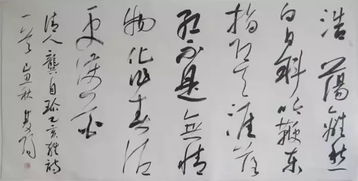 浩蕩離愁
白日斜吟鞭東
指即天涯落
紅不是無情
物化作春泥
更護花
清人龔自珍己亥雜詩
一首 丑秋